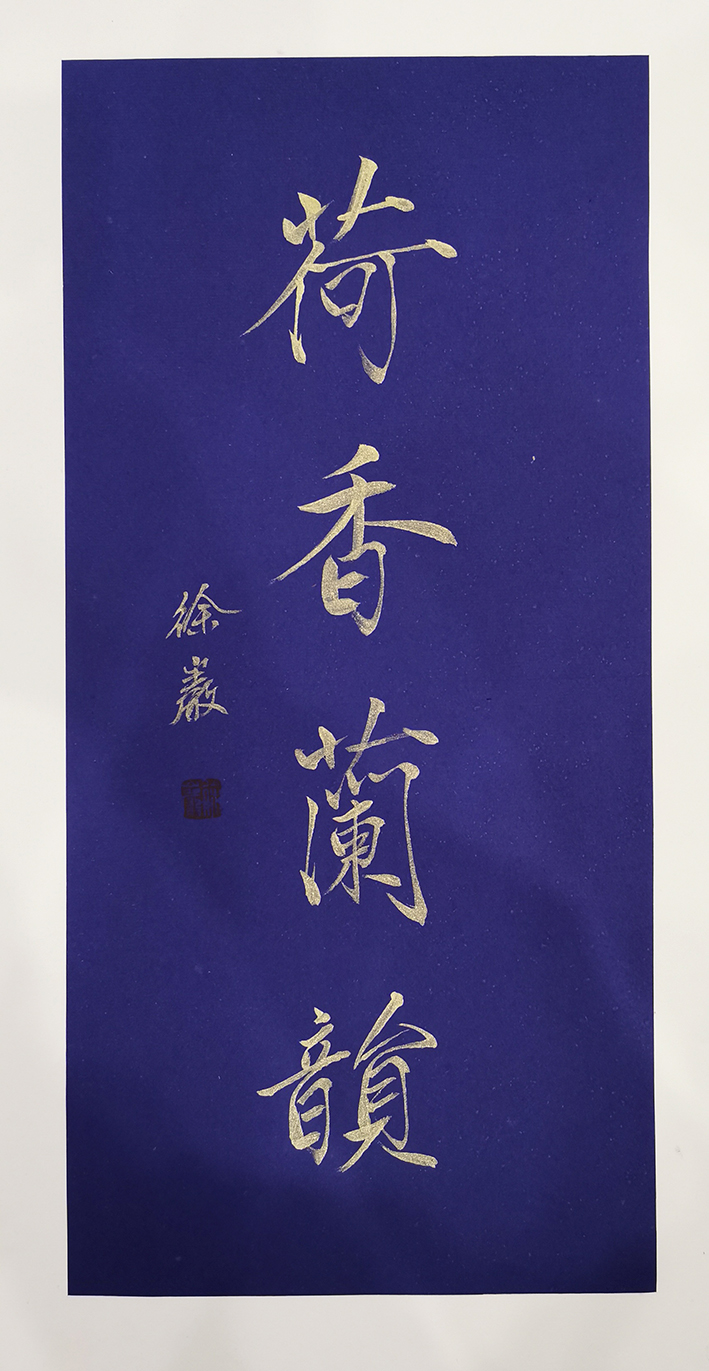 荷香蘭韻
徐巖